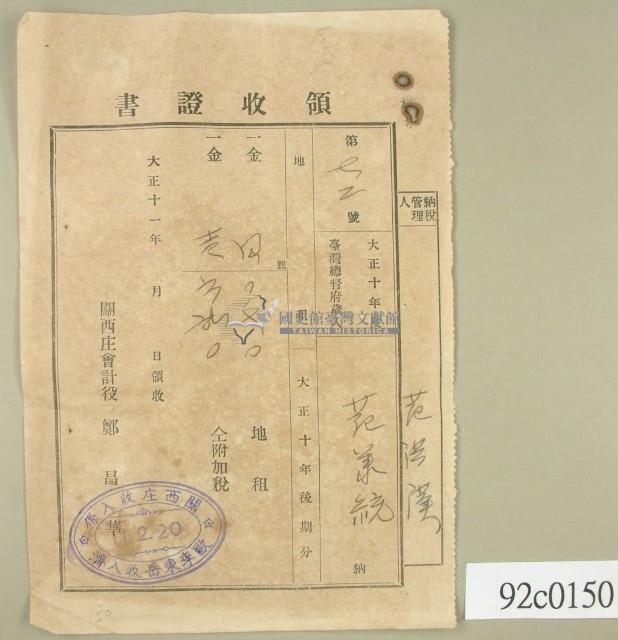 領收證書
納稅管理人
范洪漢
第七二號
大正十年度
臺灣總督府歲入
范業統
納
地租
大正十年後期分
一金
圓
地租
一金
仝附加稅
大正十一年 月 日領收
關西庄會計役 鄭昌華
關西庄收入係
11.2.20
收入濟
國史館臺灣文獻館
TAIWAN HISTORICA
92c0150
150